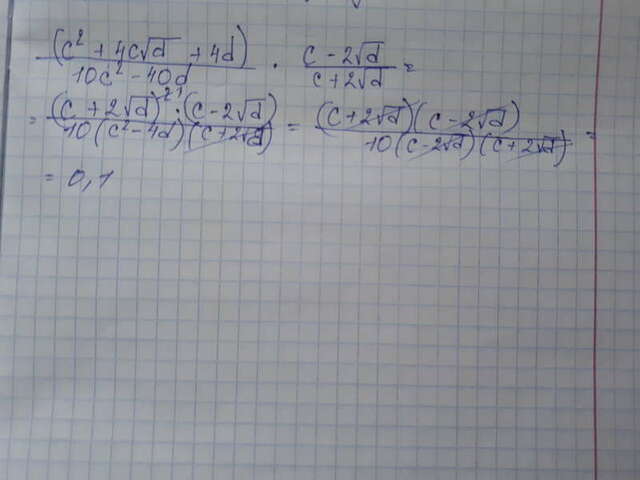 (c² + 4c√d + 4d) / 10c² - 40d · c - 2√d / c + 2√d =
= (c + 2√d)²¹ · (c - 2√d) / 10(c² - 4d)(c + 2√d) = (c + 2√d)(c - 2√d) / 10(c - 2√d)(c + 2√d) =
= 0,1